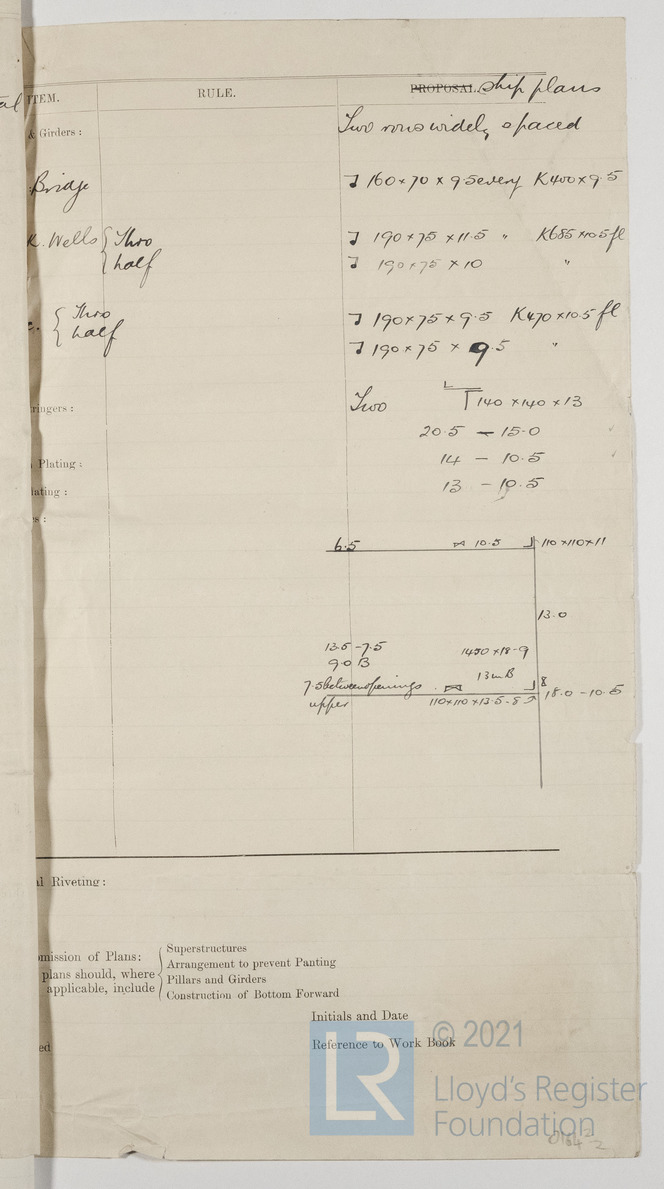 ITEM. RULE. PROPOSAL. ship plans
& Girders: Two rows widely spaced
Bridge 160 × 70 × 9.5 every K400 × 9.5
K. Wells { Thro 190 × 75 × 11.5 " K685 × 10.5 fl
half 190 × 75 × 10 "
{ Thro 190 × 75 × 9.5 K470 × 10.5 fl
half 190 × 75 × 9.5 "
ringers: Two 140 × 140 × 13
20.5 — 15.0
Plating: 14 — 10.5
lating: 13 — 10.5
s:
6.5 10.5 110 × 110 × 11
13.0
13.5 - 7.5 1450 × 18-9
9.0 B
13 in B
7.5 between openings 8
upper 110 × 110 × 13.5 - 8 18.0 - 10.5
al Riveting:
mission of Plans;
plans should, where
applicable, include
Superstructures
Arrangement to prevent Panting
Pillars and Girders
Construction of Bottom Forward
Initials and Date
Reference to Work Book
ed
LR
© 2021
Lloyd's Register
Foundation